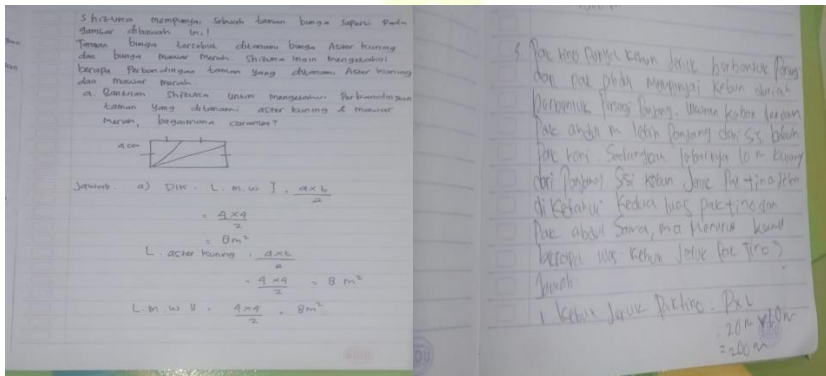 Shizuka mempunyai sebuah taman bunga seperti pada
gambar dibawah ini!
Taman bunga tersebut ditanami bunga Aster kuning
dan bunga mawar merah. Shizuka ingin mengetahui
berapa Perbandingan taman yang ditanami Aster kuning
dan mawar merah.
a. Bantulah Shizuka untuk mengetahui Perbandingan
taman yang ditanami aster kuning & mawar
merah, bagaimana caranya?
4 cm
Jawab. a) Dik. L. m. w I = a x t / 2
= 4 x 4 / 2
= 8 m²
L. aster kuning = a x t / 2
= 4 x 4 / 2 = 8 m²
L. m. w II = 4 x 4 / 2 = 8 m²
5. Pak tino kebun Jeruk berbentuk
dan pak mempunyai kebun
berbentuk Panjang. Ukuran kebun
Pak m lebih Panjang dari
Pak Sedangkan lebarnya 10 m kurang
dari Panjang sisi kebun Jeruk Pak tino
diketahui kedua luas pak tino dan
Pak abdul Sama, menurut
berapa luas kebun Jeruk Pak Tino?
Jawab
kebun Jeruk Pak tino = P x L
= 20 m x 10 m
= 200 m